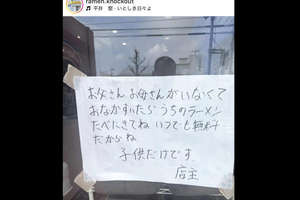 ramen.knockout
平井 堅・いとしき日々よ
お父さん お母さんがいなくて
おなかすいたらうちのラーメン
たべにきてね いつでも無料
だからね
子供だけです
店主